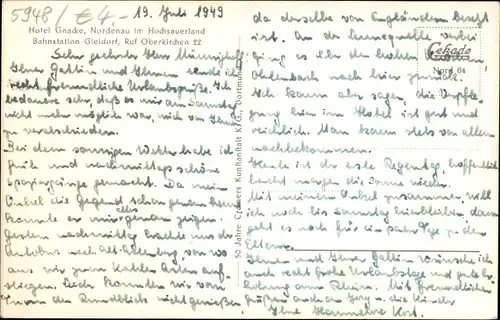 5948/ €4,-
19. Juli 1949
Hotel Gnacke, Nordenau im Hochsauerland
Bahnstation Gleidorf, Ruf Oberkirchen 22
Sehr geehrter Herr
Ihrer Gattin und Ihnen sende ich
recht freundliche Urlaubsgrüße. Ich
bedauere sehr, daß es mir am Samstag
nicht mehr möglich war, mich von Ihnen
zu verabschieden.
Bei dem sonnigen Wetter habe ich
früh und nachmittags schöne
Spaziergänge gemacht. Da mein
Onkel die Gegend schon genau kennt
konnte er mir alles genau zeigen.
Gestern nachmittag brachte uns der
Autobus nach Alt-Astenberg, von wo
aus wir zum Kahlen Asten auf-
stiegen. Leider konnten wir vom
Turm den Rundblick nicht genießen,
da derselbe von Engländern besetzt
ist. An der Lennequelle vorbei
ging es über
nach hier zurück.
Ich kann aber sagen, die Verpfle-
gung hier im Hotel ist gut und
reichlich. Man kann stets von allem
nachbekommen.
Heute ist der erste Regentag. Hoffentlich
scheint morgen die Sonne wieder.
Mit meinem Onkel zusammen will
ich noch bis Samstag hierbleiben, dann
geht es noch für ein paar Tage zu den
Eltern.
Ihnen und Ihrer Gattin wünsche ich
auch recht frohe Urlaubstage und gute Er-
holung am Rhein. Mit freundlichen
Grüßen auch an und die Kinder
Ihre Hannelore
Cekade
Nord 04
50 Jahre Cramers Kunstanstalt K.G., Dortmund